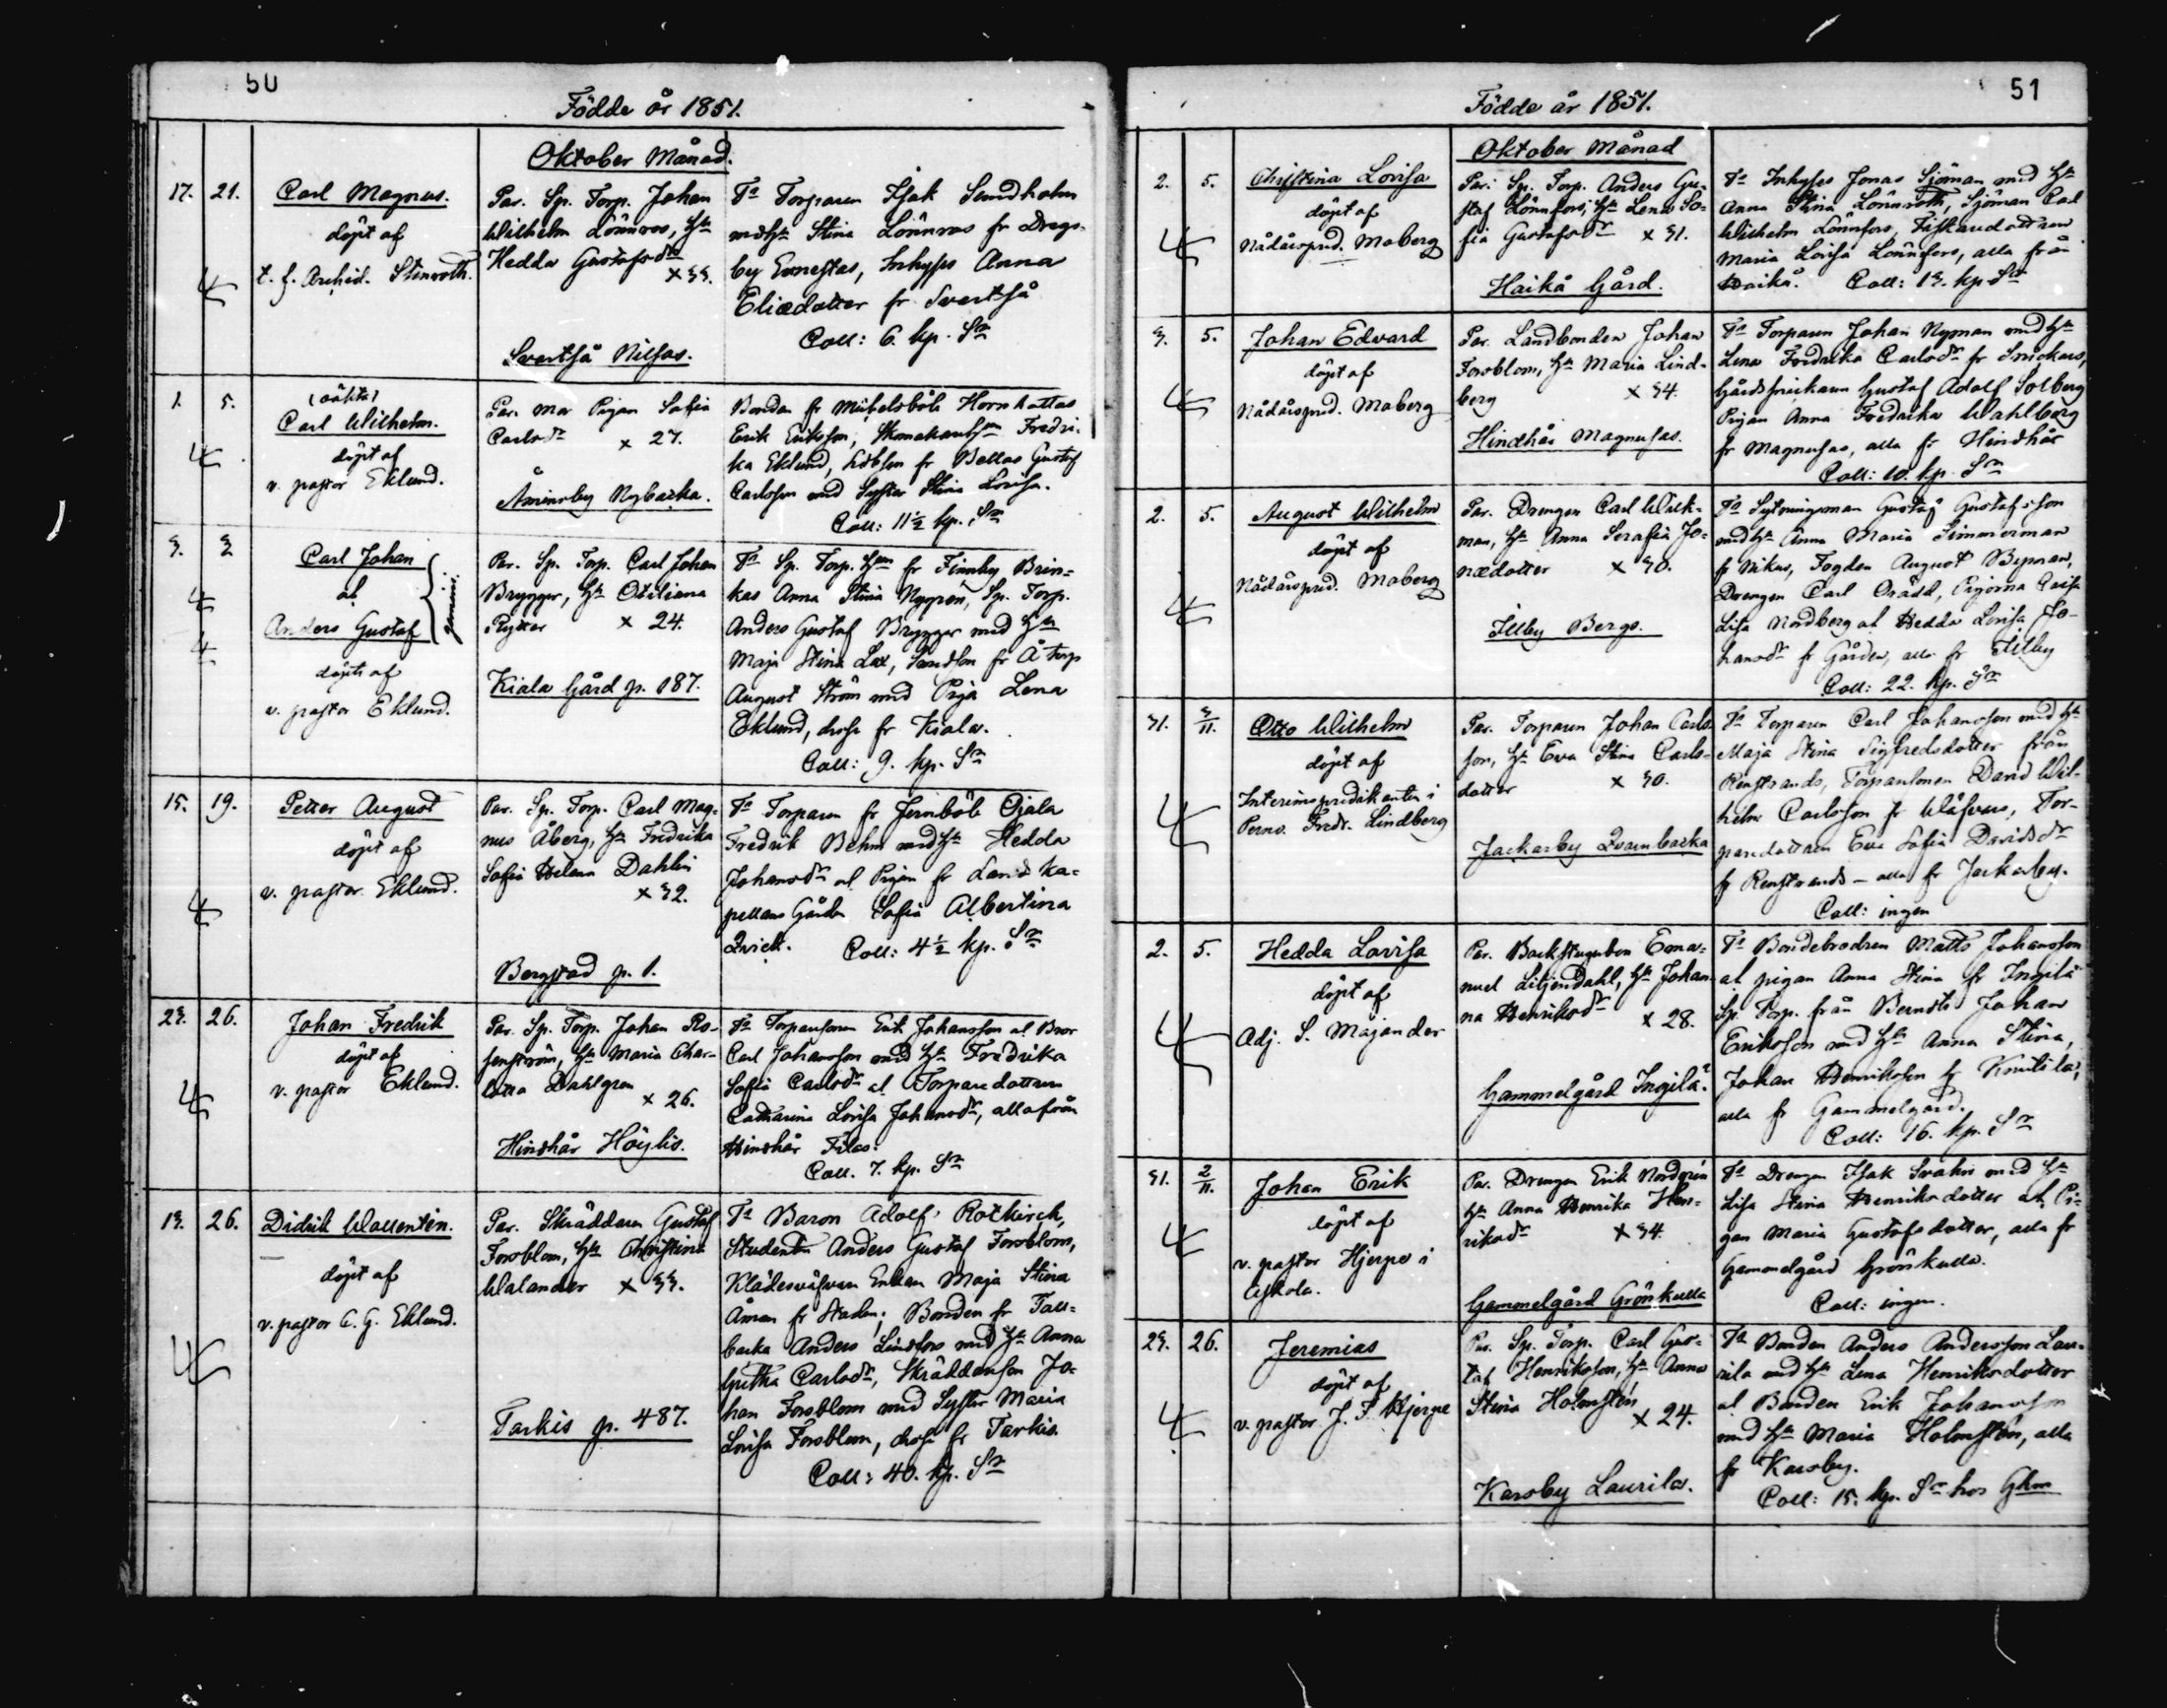 50
Födde år 1851.
Oktober Månad.
17. 21. Carl Magnus.
döpt af
t. f. Archid. Stenroth.
Par. Sp. Torp. Johan
Wilhelm Lönnros, Hu
Hedda Gustafsdr
x 33.
Svartså Nilsas.
Fa Torparen Isak Sundholm
med Hu Stina Lönnros fr Drags-
by Ernestas, Inhyses Anna
Eliædotter fr Svartså
Coll: 6. kp. Sr
1. 5. (oäkta)
Carl Wilhelm.
döpt af
v. pastor Eklund.
Par. mor Pigan Sofia
Carlsdr x 27.
Åminsby Nybacka.
Bonden fr Mickelsböle Hornhattas
Erik Eriksson, Fredri-
ka Eklund, fr Bellas Gustaf
Carlsson med Syster Stina Lovisa.
Coll: 11½ kp. Sr
3. 3
Carl Johan
at
Anders Gustaf
gemini.
döpte af
v. pastor Eklund.
Par. Sp. Torp. Carl Johan
Brygger, Hu Otiliana
Rytter x 24.
Kiala Gård p. 187.
Fa Sp. Torp. fr Finnby Brin-
kas Anna Stina Nygren, Sp. Torp.
Anders Gustaf Brygger med Hu
Maja Stina Lax, fr Å torp
August Ström med Piga Lena
Eklund, dese fr Kiala.
Coll: 9. kp. Sr
15. 19. Petter August
döpt af
v. pastor Eklund.
Par. Sp. Torp. Carl Mag-
nus Åberg, Hu Fredrika
Sofia Helena Dahlin
x 32.
Bergstad p. 1.
Fa Torparen fr Jernböle Gjala
Fredrik Behm med Hu Hedda
Johansdr at Pigan fr Lands ka-
pellans Gården Sofia Albertina
Qvick. Coll: 4½ kp. Sr
23. 26. Johan Fredrik
döpt af
v. pastor Eklund.
Par. Sp. Torp. Johan Ro-
senström, Hu Maria Char-
lotta Dahlgren
x 26.
Hindhår Höylis.
Fa Torparsonen Erik Johansson at Bror
Carl Johansson med Hu Fredrika
Sofia Carlsdr at Torparedottren
Catharina Lovisa Johansdr, alla från
Hindhår Filas.
Coll. 7. kp. Sr
13. 26. Didrik Wallentin.
döpt af
v. pastor C. G. Eklund.
Par. Skräddaren Gustaf
Forsblom, Hu Christina
Walander x 33.
Tarkis p. 487.
Fa Baron Adolf Rotkirch,
Studenten Anders Gustaf Forsblom,
Klädesväfvare Enkan Maja Stina
Åman fr Staden; Bonden fr Tall-
backa Anders Lindfors med Hu Anna
Gretha Carlsdr, Skräddarson Jo-
han Forsblom med Syster Maria
Lovisa Forsblom, dese fr Tarkis
Coll: 40. kp. Sr
51
Födde år 1851.
Oktober Månad
2. 5. Christina Lovisa
döpt af
Nådårspred. Moberg
Par. Sp. Torp. Anders Gu-
staf Lönnfors, Hu Lena So-
fia Gustafsdr x 31.
Haikå Gård.
Fa Inhyses Jonas Sjöman med Hu
Anna Stina Lönnroth, Sjöman Carl
Wilhelm Lönnfors, Fiskaredottren
Maria Lovisa Lönnfors, alla från
Haikå. Coll: 13. kp. Sr
3. 5. Johan Edvard
döpt af
Nådårspred. Moberg
Par. Landbonden Johan
Forsblom, Hu Maria Lind-
berg x 34.
Hindhår Magnusas.
Fa Torparen Johan Nyman med Hu
Lena Fredrika Carlsdr fr Snickars,
Gårdssnickaren Gustaf Adolf Solberg
Pigan Anna Fredrika Wahlberg
fr Magnusas, alla fr Hindhår
Coll: 10. kp. Sr
2. 5. August Wilhelm
döpt af
Nådårspred. Moberg
Par. Drengen Carl Wick-
man, Hu Anna Serafia Jo-
nædotter x 30.
Illby Bergs.
Fa Sytningsman Gustaf Gustafsson
med Hu Anna Maria Simmerman
fr Nikus, Fogden August Byman,
Drengen Carl Orädd, Pigorna Caisa
Lisa Nordberg at Hedda Lovisa Jo-
hansdr fr Gården, alla fr Illby
Coll: 22. kp. Sr
31. 3/11. Otto Wilhelm
döpt af
Interimspredikanten i
Perno Fredr. Lindberg
Par. Torparen Johan Carls-
son, Hu Eva Stina Carls-
dotter x 30.
Jackarby Qvarnbacka
Fa Torparen Carl Johansson med Hu
Maja Stina Sigfredsdotter från
Renstrands, Torparsonen David Wil-
helm Carlsson fr Wäfvars, Tor-
paredottren Eva Sofia Davidsdr
fr Renstrands – alla fr Jackarby.
Coll: ingen
2. 5. Hedda Lovisa
döpt af
Adj. S. Majander
Par. Backstugubon Ema-
nuel Liljendahl, Hu Johan-
na Henriksdr x 28.
Gammelgård Ingilä.
Fa Bondebrodren Matts Johansson
at pigan Anna Stina fr Ingilä
Sp. Torp. från Berndts Johan
Eriksson med Hu Anna Stina,
Johan Henriksson fr Knutila,
alla fr Gammelgård.
Coll: 16. kp. Sr
31. 2/11. Johan Erik
döpt af
v. pastor Hjerpe i
Askola.
Par. Drengen Erik Nordgrén
Hu Anna Henrika Hen-
riksdr x 34.
Gammelgård Grönkulla
Fa Drengen Isak Svahn med Hu
Lisa Stina Henriksdotter at Pi-
gan Maria Gustafsdotter, alla fr
Gammelgård Grönkulla.
Coll: ingen.
23. 26. Jeremias
döpt af
v. pastor J. F. Hjerpe
Par. Sp. Torp. Carl Gus-
taf Henriksson, Hu Anna
Stina Holmstén
x 24.
Karsby Laurila.
Fa Bonden Anders Andersson Lau-
rila med Hu Lena Henriksdotter
at Bonden Erik Johansson
med Hu Maria Holmstén, alla
fr Karsby.
Coll: 15. kp. Sr hos Ghm